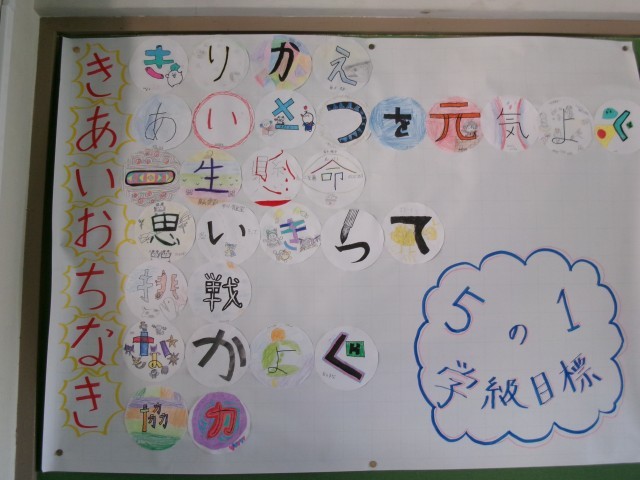 きりかえ
あいさつを元気よく
一生懸命
思いきって
挑戦
なかよく
協力
きあいおちなき
5の1
学級目標